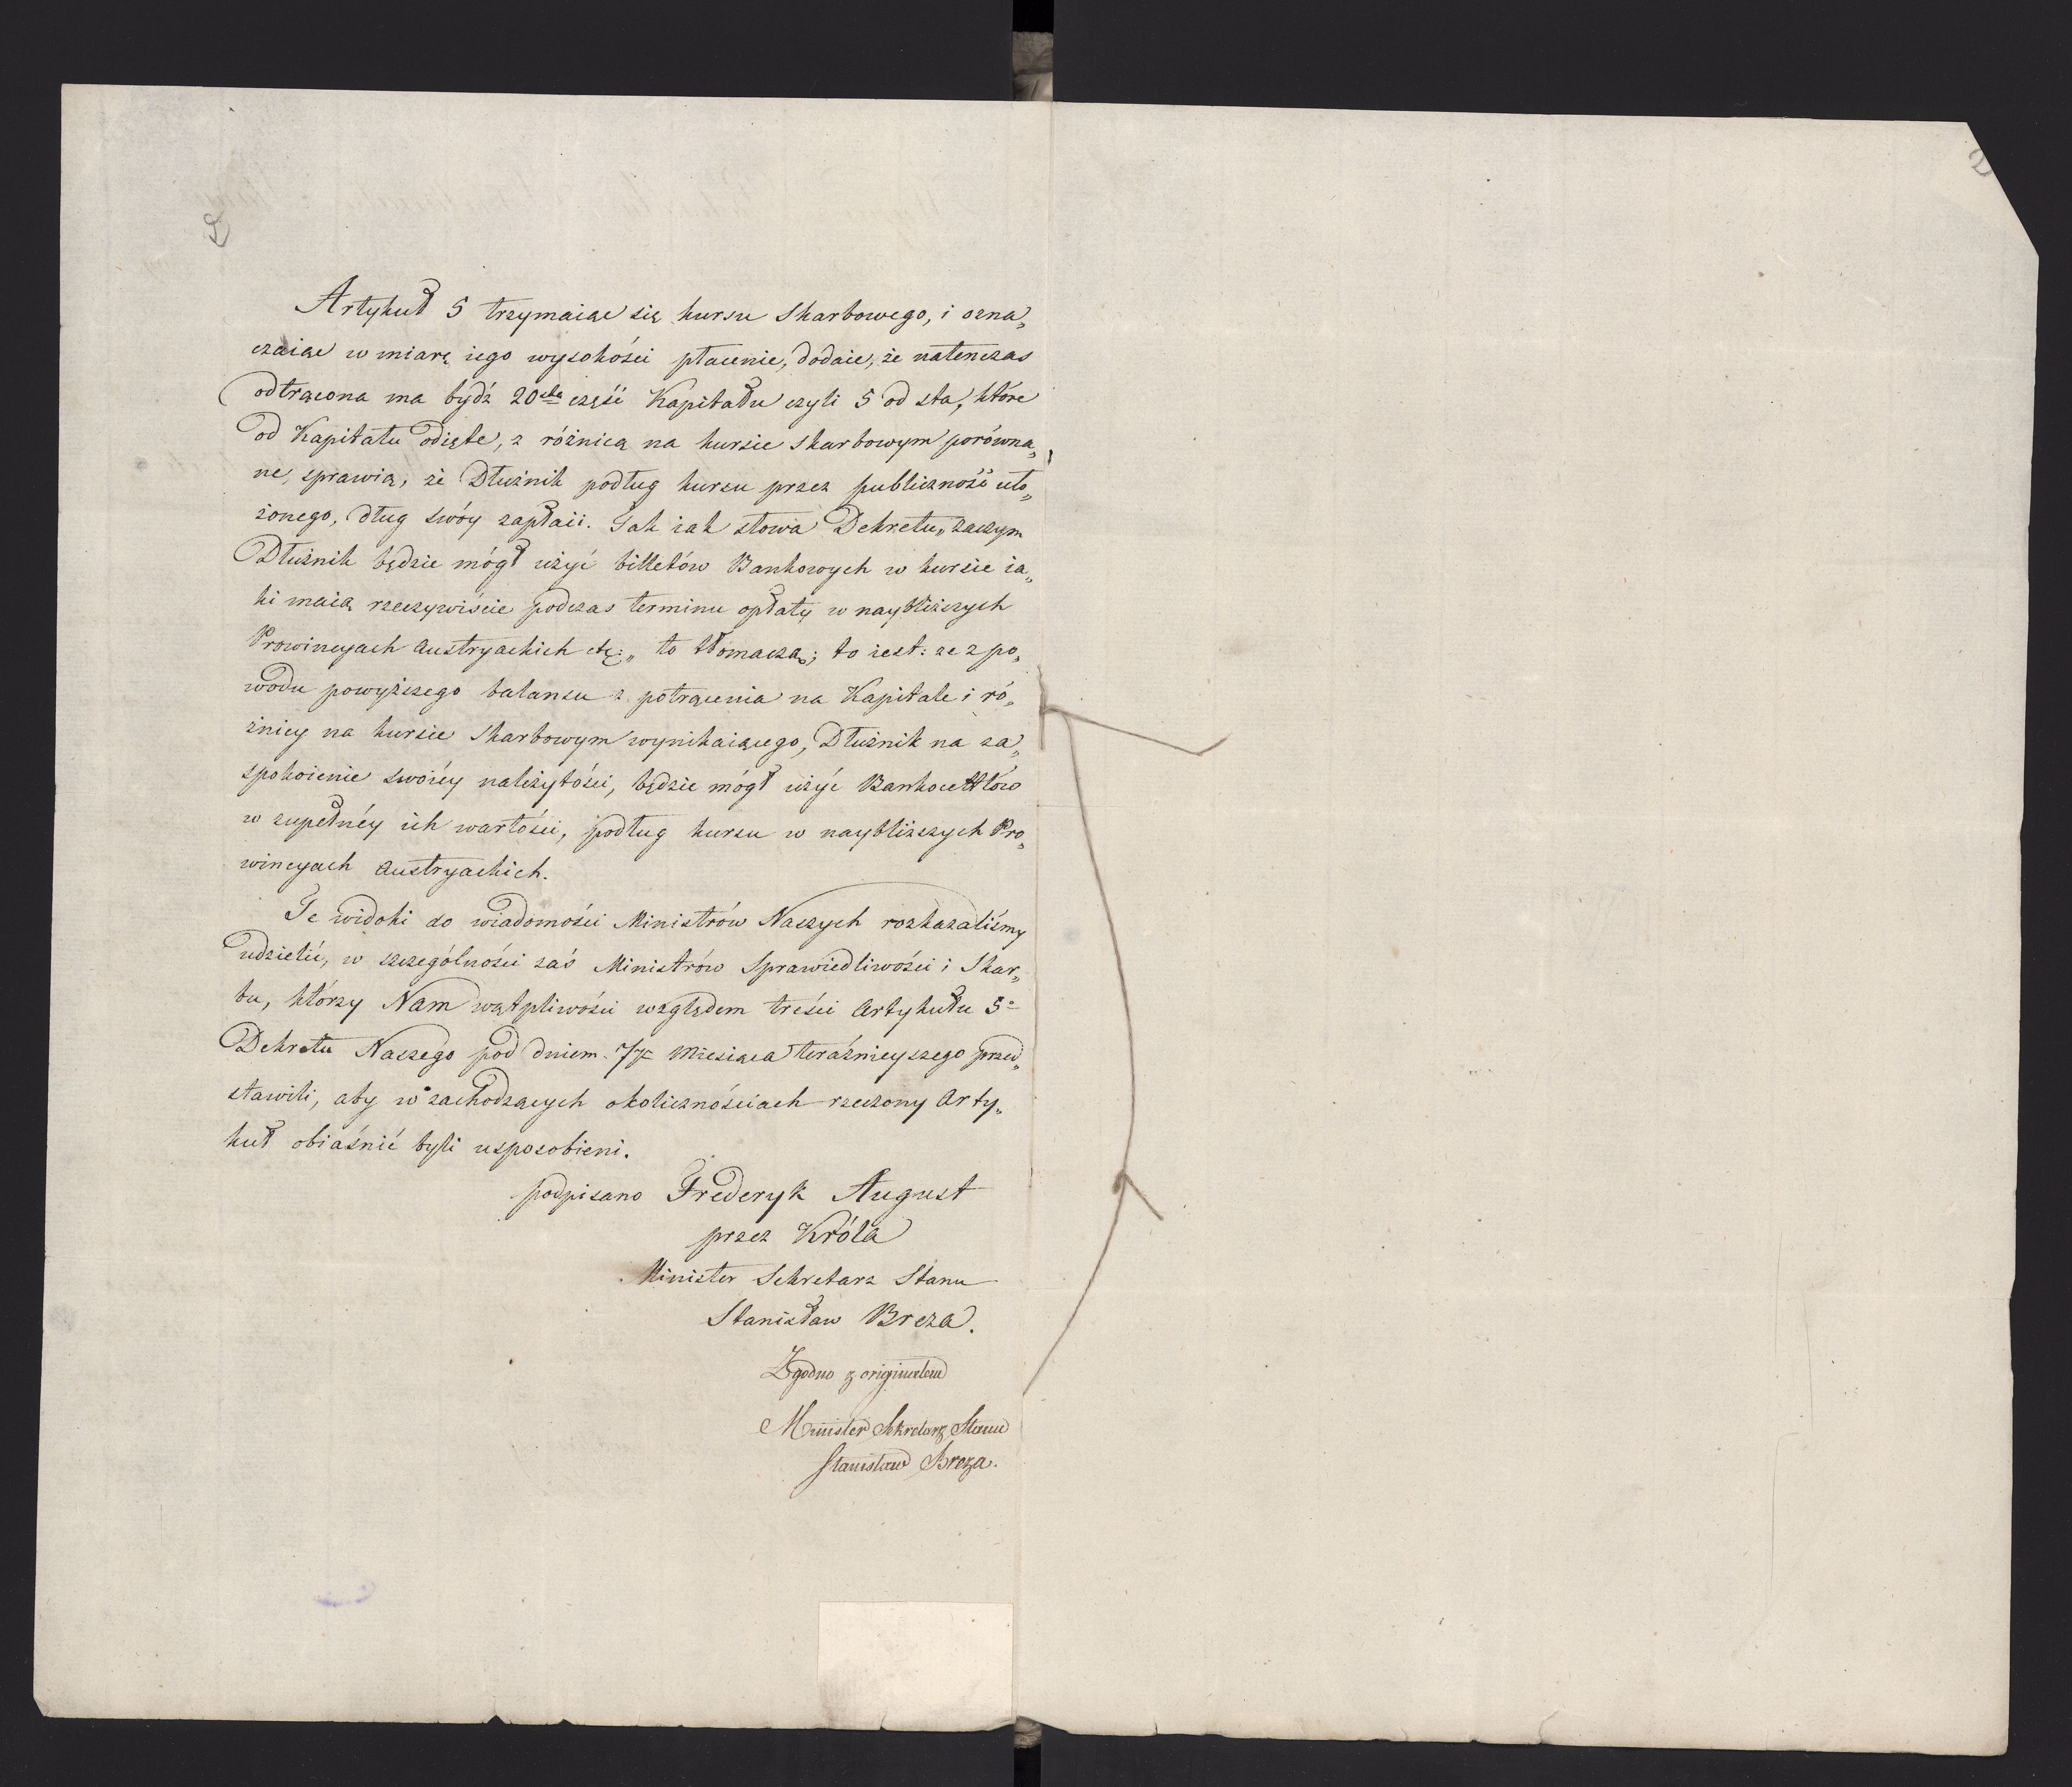 2
Artykuł 5 trzymaiąc się kursu Skarbowego, i ozna„
czaiąc w miarę iego wysokości płacenie, dodaie, że natenczas
odtrącona ma bydź 20sta część Kapitału czyli 5 od sta, które
od Kapitału odięte, z różnicą na kursie skarbowym porówna„
ne, sprawią, że Dłużnik podług kursu przez publiczność uło„
żonego, dług swóy zapłaci. Jak iak słowa Dekretu „zaczym
Dłużnik będzie mógł użyć billetów Bankowych w kursie ia„
ki maią rzeczywiście podczas terminu opłaty w naybliższych
Prowincyach Austryackich etc: „ to tłomaczą; to iest: że z po„
wodu powyższego balansu z potrącenia na Kapitale i ró„
żnicy na kursie Skarbowym wynikaiącego, Dłużnik na za„
spokoienie swoiéy należytości, będzie mógł użyć Bankocetlów
w zupełnéy ich wartości, podług kursu w naybliższych Pro„
wincyach Austryackich.
Te widoki do wiadomości Ministrów Naszych rozkazaliśmy
udzielić, w szczególności zaś Ministrów Sprawiedliwości i Skar„
bu, którzy Nam wątpliwości względem treści Artykułu 5o
Dekretu Naszego pod dniem 7 miesiąca teraźnieyszego przed„
stawili, aby w zachodzących okolicznościach rzeczony Arty„
kuł obiaśnić byli usposobieni.
podpisano Frederyk August
przez Króla
Minister Sekretarz Stanu
Stanisław Breza.
Zgodno z originałem
Minister Sekretarz Stanu
Stanisław Breza.